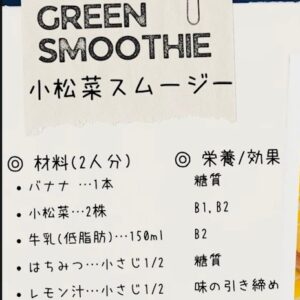 GREEN
SMOOTHIE
小松菜スムージー
◎ 材料(2人分)
• バナナ …1本
• 小松菜…2株
• 牛乳(低脂肪)…150ml
• はちみつ…小さじ1/2
• レモン汁…小さじ1/2
◎ 栄養/効果
糖質
B1,B2
B2
糖質
味の引き締め